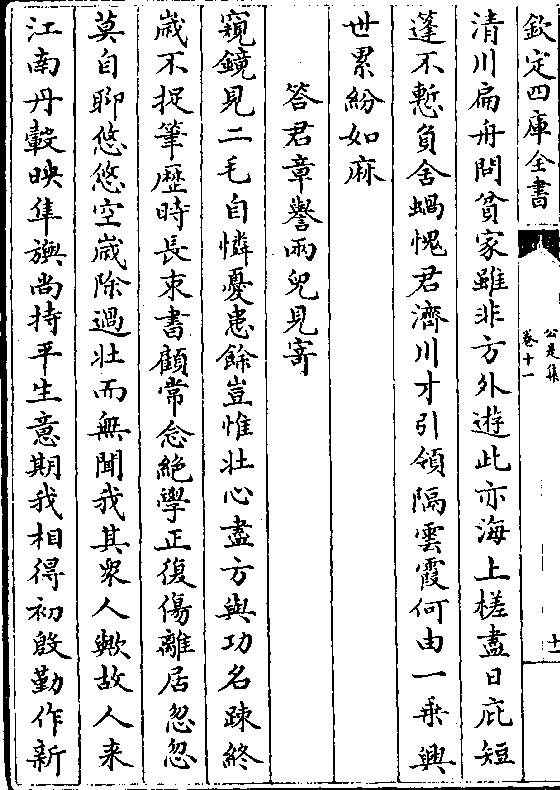 欽定四庫全書
公是集
卷十一
十一
清川扁舟問貧家雖非方外遊此亦海上槎盡日庇短
蓬不慙負舍蝸愧君濟川才引領隔雲霞何由一乗興
世累紛如麻
答君章譽兩兒見寄
窺鏡見二毛自憐憂患餘豈惟壯心盡方與功名踈終
歳不捉筆歴時長束書顧常念絶學正復傷離居忽忽
莫自聊悠悠空嵗除過壯而無聞我其衆人歟故人来
江南丹轂映隼旟尚持平生意期我相得初慇勤作新